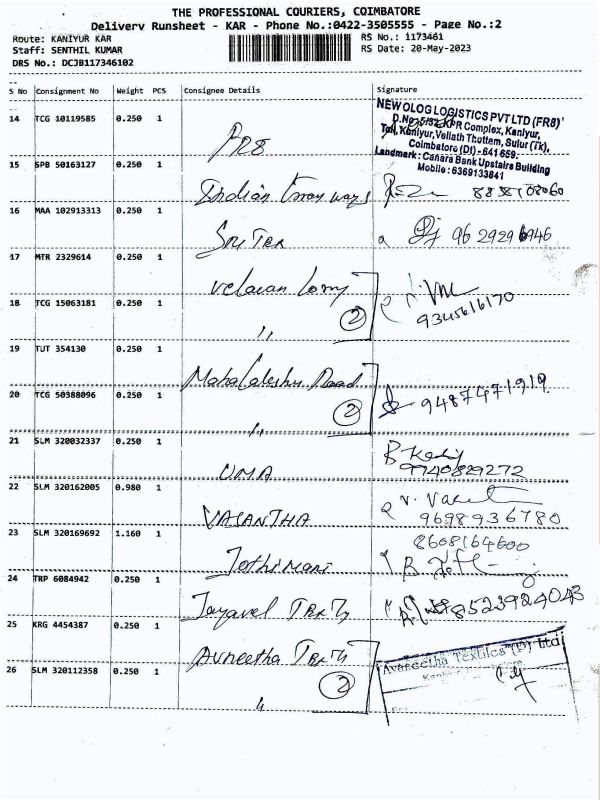 THE PROFESSIONAL COURIERS, COIMBATORE
Delivery Runsheet - KAR - Phone No.:0422-3505555 - Page No.:2
Route: KANIYUR KAR
RS No.: 1173461
Staff: SENTHIL KUMAR
RS Date: 20-May-2023
DRS No.: DCJB117346102
S No Consignment No Weight PCS Consignee Details Signature
14 TCG 10119585 0.250 1
NEW OLOG LOGISTICS PVT LTD (FR8)
D.No: 5/32, KPR Complex, Kaniyur,
Toll, Kaniyur, Vellath Thottam, Sulur (Tk),
Coimbatore (Dt) - 641 659.
Landmark: Canara Bank Upstairs Building
Mobile: 6369133841
FR8
15 SPB 50163127 0.250 1
Indian
16 MAA 102913313 0.250 1
Sri Tex
96 29296946
17 MTR 2329614 0.250 1
Velavan Lorry
9345616170
18 TCG 15063181 0.250 1
2
,,
19 TUT 354130 0.250 1
Road
20 TCG 50388096 0.250 1
2
9487471919
,,
21 SLM 320032337 0.250 1
UMA
9740829272
22 SLM 320162005 0.980 1
VASANTHA
9698936780
23 SLM 320169692 1.160 1
8608164600
Jothimani
24 TRP 6084942 0.250 1
Jayavel
8523924043
25 KRG 4454387 0.250 1
Avneetha
26 SLM 320112358 0.250 1
2
,,
Avaneetha Textiles (P) Ltd